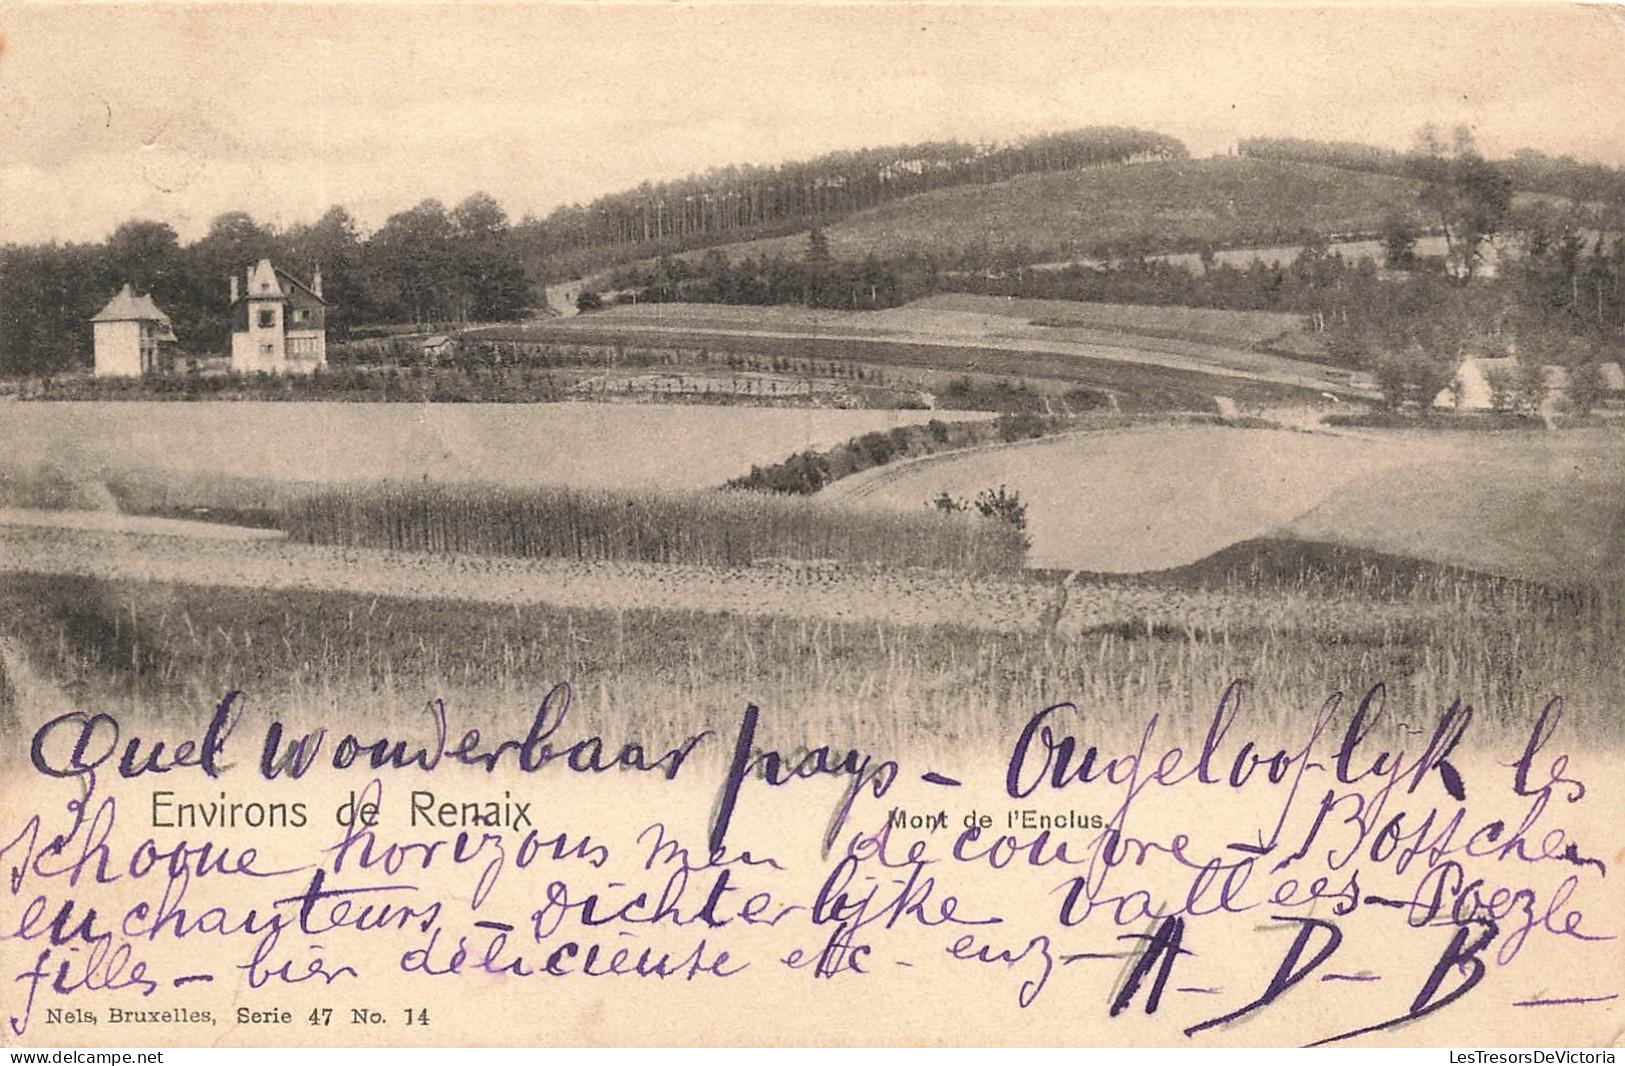 Quel wonderbaar pays - Ongelooflijk les
Environs de Renaix
Mont de l'Enclus.
schoone horizons men découvre - Bosschen
enchanteurs - Dichterlijke vallées - Poezle
filles - bier délicieuse etc - enz - A - D - B -
Nels, Bruxelles, Serie 47 No. 14
LesTresorsDeVictoria